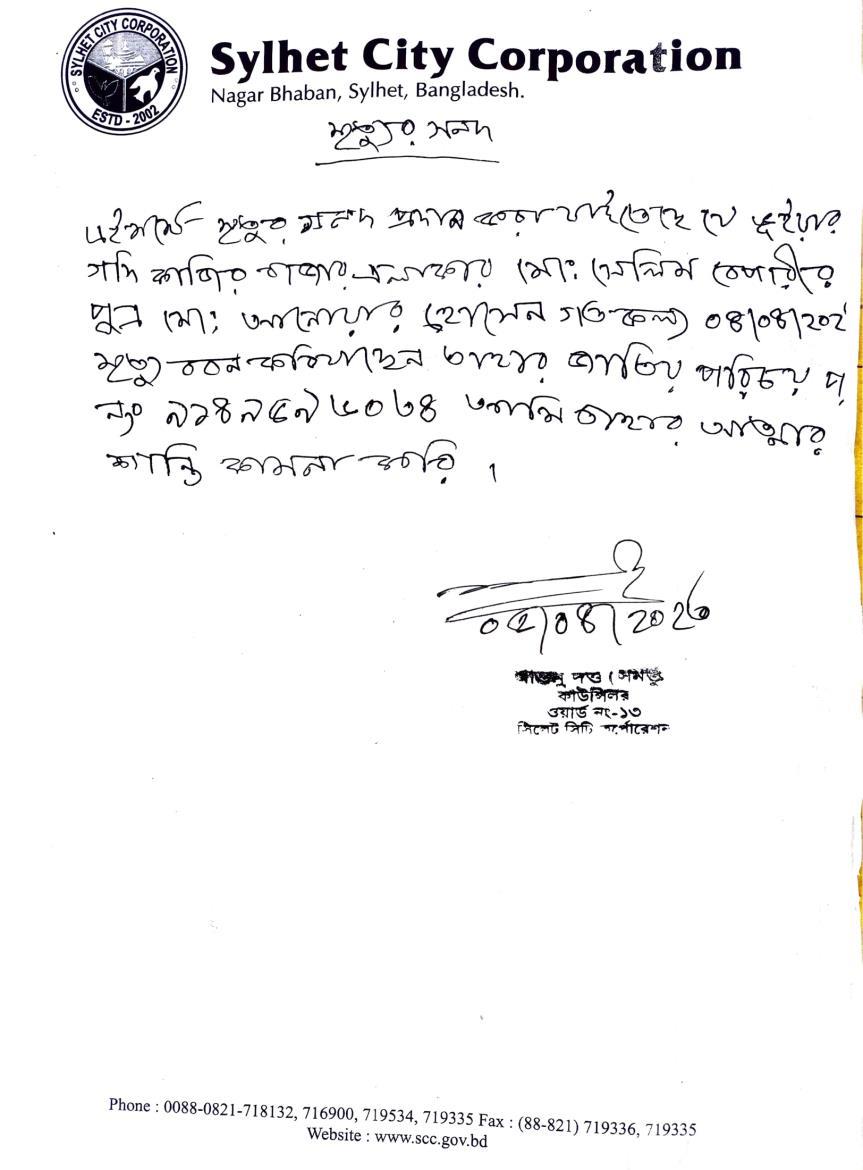 SYLHET CITY CORPORATION
ESTD - 2002
Sylhet City Corporation
Nagar Bhaban, Sylhet, Bangladesh.
মৃত্যুর সনদ
এইমর্মে মৃত্যুর সনদ প্রদান করা যাইতেছে যে
কাজির বাজার এলাকার মোঃ সেলিম বেপারীর
পুত্র মোঃ আনোয়ার হোসেন গতকল্য ০৪/০৪/২০২
মৃত্যু বরন করিয়াছেন তাহার জাতিয় পরিচয় প
নং আমি তাহার আত্মার
শান্তি কামনা করি ।
কাউন্সিলর
ওয়ার্ড নং-১৩
সিলেট সিটি কর্পোরেশন
Phone : 0088-0821-718132, 716900, 719534, 719335 Fax : (88-821) 719336, 719335
Website : www.scc.gov.bd